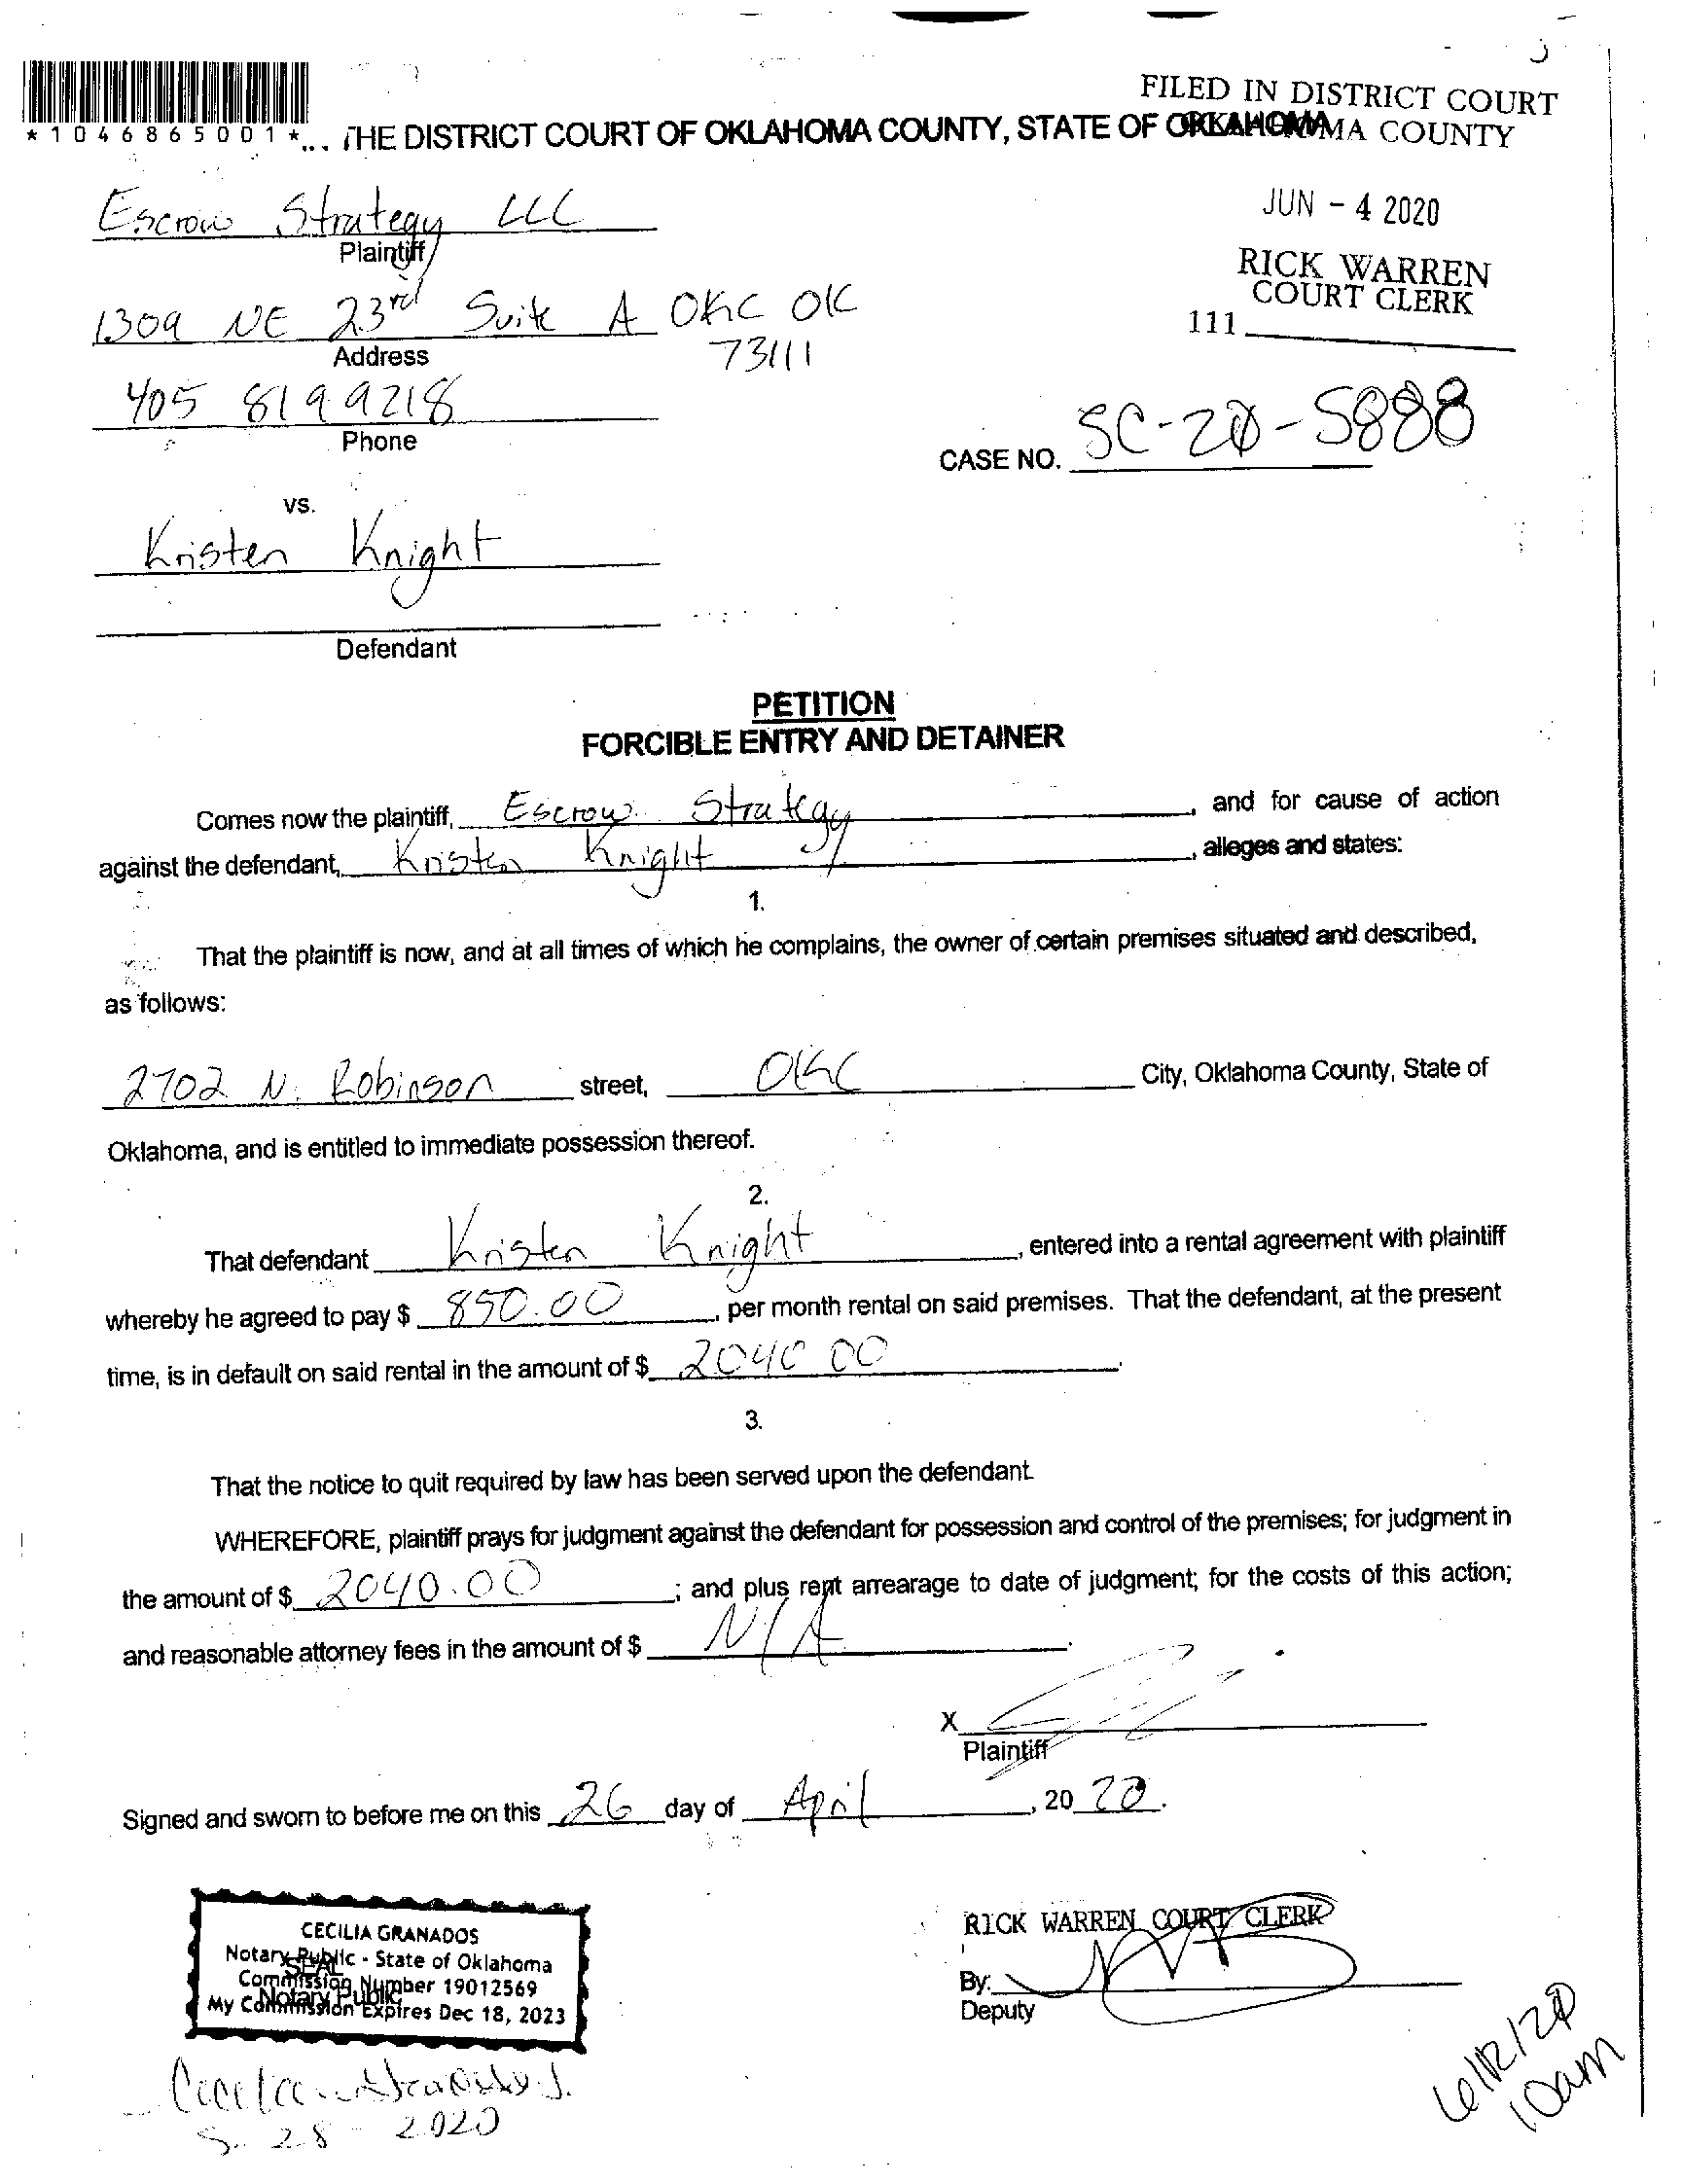 FILED IN DISTRICT COURT
OKLAHOMA COUNTY
*1046865001*
THE DISTRICT COURT OF OKLAHOMA COUNTY, STATE OF OKLAHOMA
JUN - 4 2020
RICK WARREN
COURT CLERK
111
Escrow Strategy LLC
Plaintiff
1309 NE 23rd Suite A OKC OK
73111
Address
405 819 9218
Phone
CASE NO. SC-20-5888
vs.
Kristen Knight
Defendant
PETITION
FORCIBLE ENTRY AND DETAINER
Comes now the plaintiff, Escrow Strategy, and for cause of action
against the defendant, Kristen Knight, alleges and states:
1.
That the plaintiff is now, and at all times of which he complains, the owner of certain premises situated and described,
as follows:
2702 N. Robinson street, OKC City, Oklahoma County, State of
Oklahoma, and is entitled to immediate possession thereof.
2.
That defendant Kristen Knight, entered into a rental agreement with plaintiff
whereby he agreed to pay $ 850.00, per month rental on said premises. That the defendant, at the present
time, is in default on said rental in the amount of $ 2040 00.
3.
That the notice to quit required by law has been served upon the defendant.
WHEREFORE, plaintiff prays for judgment against the defendant for possession and control of the premises; for judgment in
the amount of $ 2040.00; and plus rent arrearage to date of judgment; for the costs of this action;
and reasonable attorney fees in the amount of $ N/A.
X
Plaintiff
Signed and sworn to before me on this 26 day of April, 20 20.
CECILIA GRANADOS
Notary Public - State of Oklahoma
Commission Number 19012569
My Commission Expires Dec 18, 2023
SEAL
Notary Public
RICK WARREN COURT CLERK
By:
Deputy
5-28-2020
6/12/20
10am